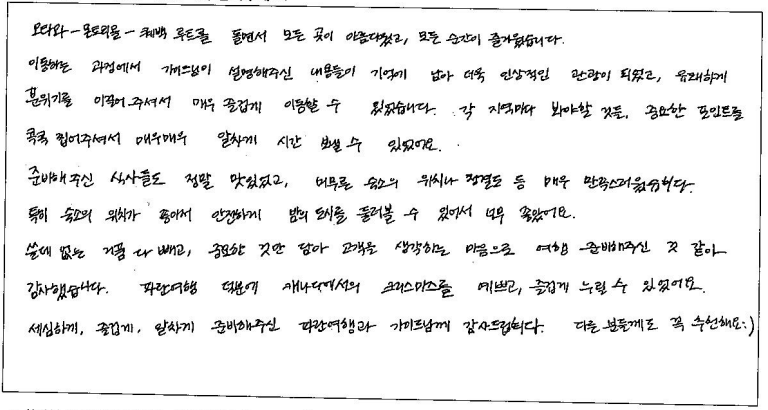 오타와-몬트리올-퀘백 루트를 돌면서 모든 곳이 아름다웠고, 모든 순간이 즐거웠습니다.
이동하는 과정에서 가이드님이 설명해주신 내용들이 기억에 남아 더욱 인상적인 관광이 되었고, 유쾌하게
분위기를 이끌어 주셔서 매우 즐겁게 이동할 수 있었습니다. 각 지역마다 봐야할 것들, 중요한 포인트를
콕콕 찝어주셔서 매우매우 알차게 시간 보낼 수 있었어요.
준비해 주신 식사들도 정말 맛있었고, 머무른 숙소의 위치나 청결도 등 매우 만족스러웠습니다.
특히 숙소의 위치가 좋아서 안전하게 밤의 도시를 둘러볼 수 있어서 너무 좋았어요.
쓸데 없는 거품 다 빼고, 중요한 것만 담아 고객을 생각하는 마음으로 여행 준비해주신 것 같아
감사했습니다. 파란여행 덕분에 캐나다에서의 크리스마스를 예쁘고, 즐겁게 누릴 수 있었어요.
세심하게, 즐겁게, 알차게 준비해주신 파란여행과 가이드님께 감사드립니다. 다른 분들께도 꼭 추천해요:)